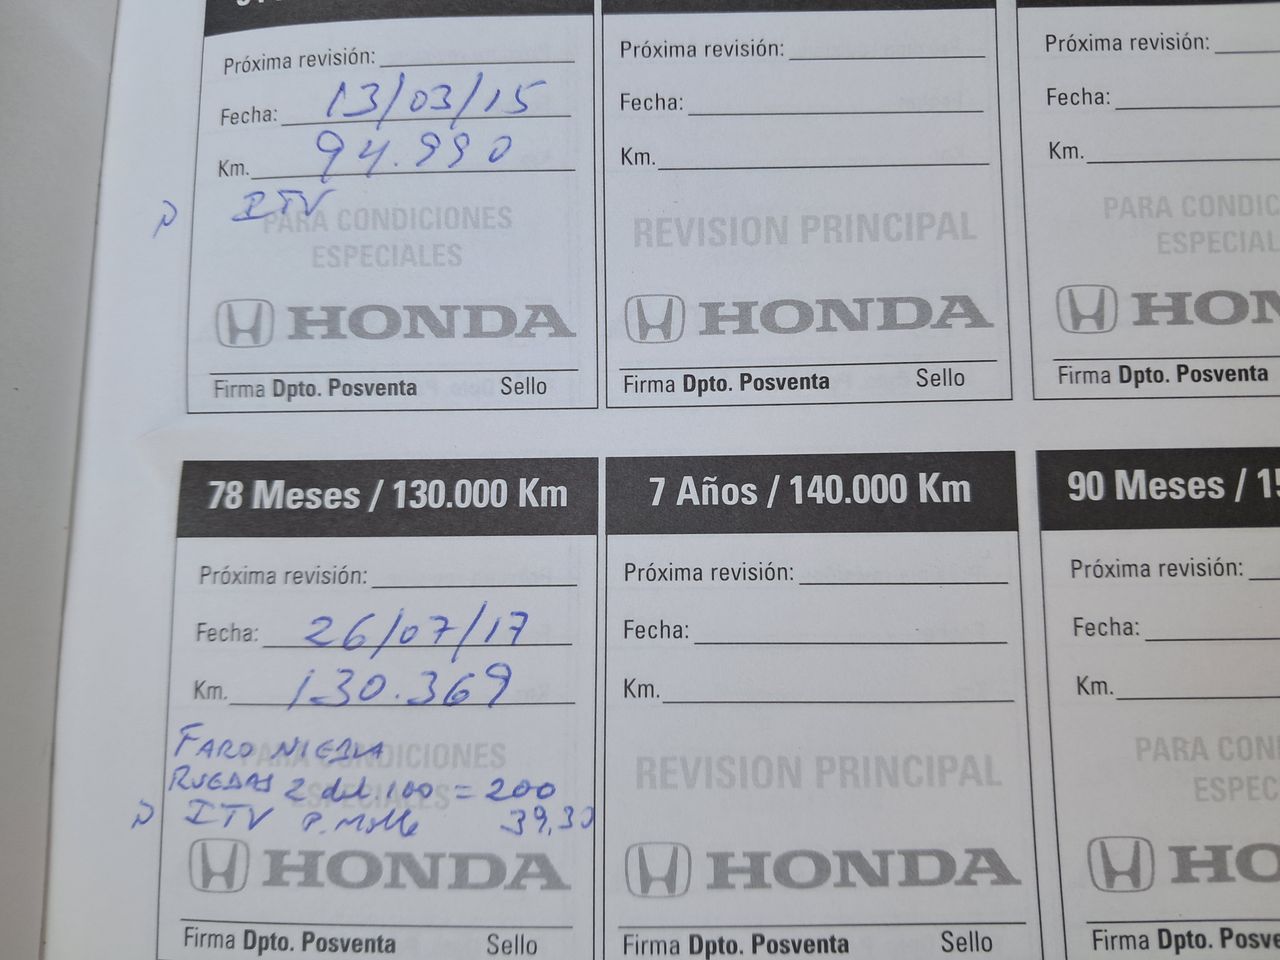 Próxima revisión:
Fecha: 13/03/15
Km. 94.990
ITV
PARA CONDICIONES
ESPECIALES
HONDA
Firma Dpto. Posventa Sello
Próxima revisión:
Fecha:
Km.
REVISION PRINCIPAL
HONDA
Firma Dpto. Posventa Sello
Próxima revisión:
Fecha:
Km.
PARA CONDIC
ESPECIAL
HON
Firma Dpto. Posventa
78 Meses / 130.000 Km
Próxima revisión:
Fecha: 26/07/17
Km. 130.369
FARO NIEBLA
PARA CONDICIONES
RUEDAS 2 del 100 = 200
ESPECIALES
ITV P. Molle 39,30
HONDA
Firma Dpto. Posventa Sello
7 Años / 140.000 Km
Próxima revisión:
Fecha:
Km.
REVISION PRINCIPAL
HONDA
Firma Dpto. Posventa Sello
90 Meses / 15
Próxima revisión:
Fecha:
Km.
PARA CON
ESPEC
HO
Firma Dpto. Posve